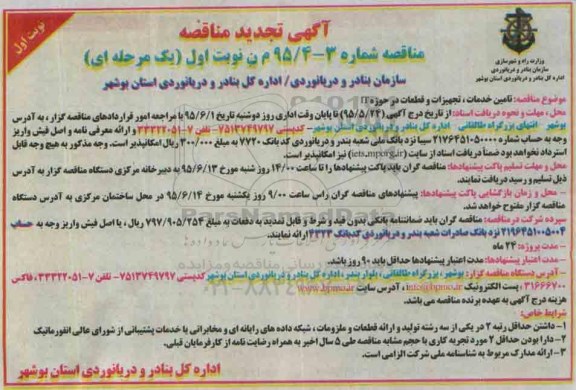 نوبت اول
آگهی تجدید مناقصه
مناقصه شماره ۳-۹۵/۴ م ن نوبت اول (یک مرحله ای)
سازمان بنادر و دریانوردی/ اداره کل بنادر و دریانوردی استان بوشهر
وزارت راه و شهرسازی
سازمان بنادر و دریانوردی
اداره کل بنادر و دریانوردی استان بوشهر
موضوع مناقصه: تامین خدمات ، تجهیزات و قطعات در حوزه IT
محل ، مهلت و نحوه دریافت اسناد: از تاریخ درج آگهی (۹۵/۵/۲۴) تا پایان وقت اداری روز دوشنبه تاریخ ۹۵/۶/۱ با مراجعه امور قراردادهای مناقصه گزار ، به آدرس
بوشهر- انتهای بزرگراه طالقانی - اداره کل بنادر و دریانوردی استان بوشهر- کدپستی ۷۵۱۳۷۴۹۷۹۷- تلفن ۷-۳۳۳۲۲۰۵۱ و ارائه معرفی نامه و اصل فیش واریز
وجه به حساب شماره ۲۱۷۶۴۵۱۰۵۰۰۰۰ سیبا نزد بانک ملی شعبه بندر و دریانوردی کد بانک ۷۷۲۰ به مبلغ ۳۰۰/۰۰۰ ریال امکانپذیر است. وجه مذکور به هیچ وجه قابل
استرداد نخواهد بود ضمناً دریافت اسناد از سایت (iets.mporg.ir) نیز امکانپذیر است.
محل و مهلت تسلیم پاکت پیشنهادها: مناقصه گران باید پاکت پیشنهادها را تا ساعت ۱۴/۰۰ روز شنبه مورخ ۹۵/۶/۱۳ به دبیرخانه مرکزی دستگاه مناقصه گزار به آدرس
ذیل تسلیم و رسید دریافت نمایند.
- محل و زمان بازگشایی پاکت پیشنهادها: پیشنهادهای مناقصه گران راس ساعت ۹/۰۰ روز یکشنبه مورخ ۹۵/۶/۱۴ در محل ساختمان مرکزی به آدرس دستگاه
مناقصه گزار مفتوح خواهد شد.
سپرده شرکت در مناقصه: مناقصه گران باید ضمانتنامه بانکی بدون قید و شرط و قابل تمدید به دفعات به مبلغ ۷۹۷/۹۰۵/۲۵۴ ریال ، یا اصل فیش واریز وجه به حساب
۲۱۹۶۴۵۱۰۰۵۰۰۴ نزد بانک صادرات شعبه بندر و دریانوردی کدبانک ۴۳۲۳ ارائه نمایند.
- مدت پروژه: ۲۴ ماه
- مدت اعتبار پیشنهادها: مدت اعتبار پیشنهادها حداقل باید ۹۰ روز باشد.
- آدرس دستگاه مناقصه گزار: بوشهر ، بزرگراه طالقانی ، بلوار بندر ، اداره کل بنادر و دریانوردی استان بوشهر کدپستی ۷۵۱۳۷۴۹۷۹۷- تلفن ۷-۳۳۳۲۲۰۵۱، فاکس
۰۳۱۶۶۷۰۰ پست الکترونیک info@bpmo.ir ، آدرس سایت www.bpmo.ir
هزینه درج آگهی به عهده برنده مناقصه می باشد.
شرایط خاص:
۱- داشتن حداقل رتبه ۲ در یکی از سه رشته تولید و ارائه قطعات و ملزومات ، شبکه داده های رایانه ای و مخابراتی یا خدمات پشتیبانی از شورای عالی انفورماتیک
۲- دارا بودن حداقل ۲ مورد تجربه کاری با حجم مشابه مناقصه طی ۵ سال اخیر به همراه رضایت نامه از کارفرمایان قبلی.
۳- ارائه مدارک مربوط به شناسنامه ملی شرکت الزامی است.
اداره کل بنادر و دریانوردی استان بوشهر